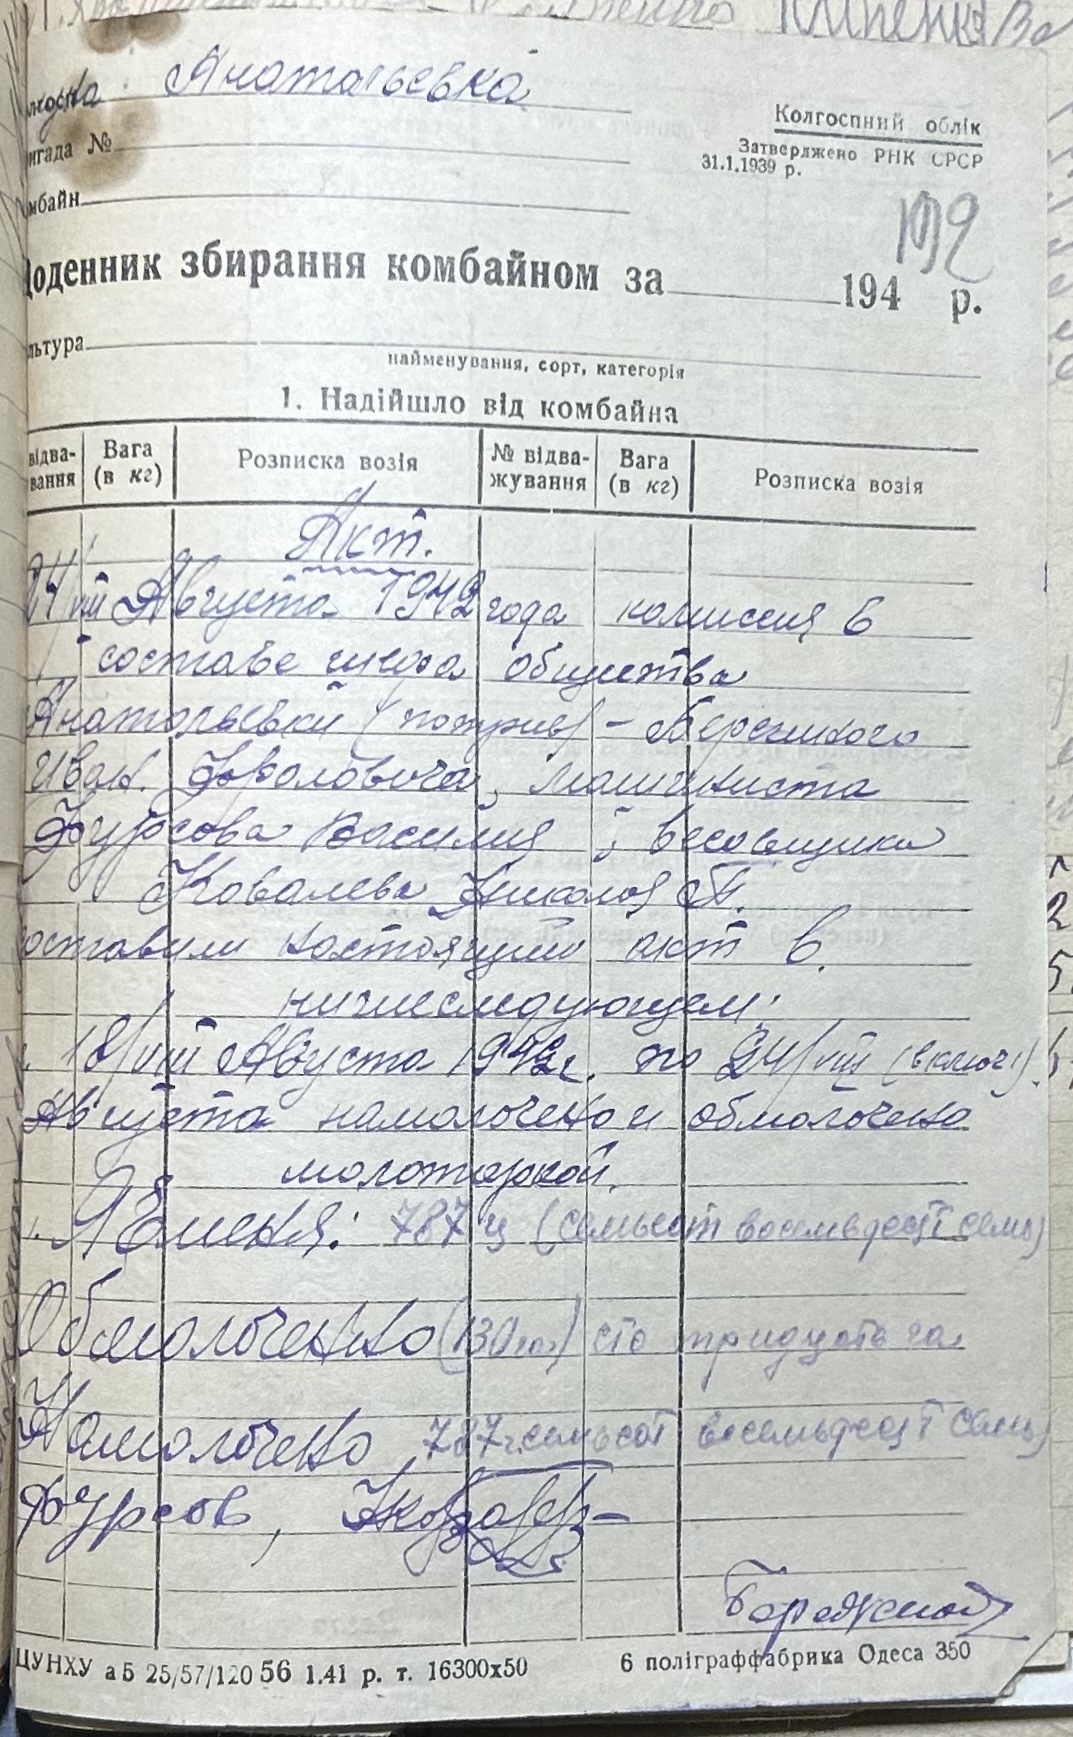 Анатольевка
Колгоспний облік
Затверджено РНК СРСР
31.1.1939 р.
игада №
мбайн
192
оденник збирання комбайном за 194 р.
льтура
найменування, сорт, категорія
1. Надійшло від комбайна
відва-
вання
Вага
(в кг)
Розписка возія
№ відва-
жування
Вага
(в кг)
Розписка возія
Акт.
24/VIII Августа 1942 года комиссия в
составе общества
Анатольевки
Иван. Фроловича, машиниста
Фурсова Василия, весовщика
Ковалева Николая
оставили настоящий акт в
нижеследующем:
18/VIII Августа 1942 г. по 24/VIII (включ.)
Августа намолочено и обмолочено
молотаркой.
1. Ячменя: 787 ц (семьсот восемьдесят семь)
Обмолочено (130 га) сто тридцать га
Намолочено 787 ц. семьсот восемьдесят семь)
Фурсов,
Бережной
ЦУНХУ аб 25/57/120 56 1.41 р. т. 16300х50
6 поліграффабрика Одеса 350